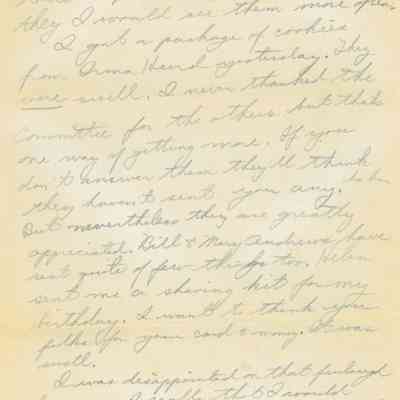 they I would see them more often
I got a package of cookies
from Irma Heerd yesterday. They
were swell. I never thanked the
Committee for the others but thats
one way of getting more. If you
don't answer them they'll think
they haven't sent you any. Ha ha
But nevertheless they are greatly
appreciated. Bill & Mary Andrews have
sent quite of few things too. Helen
sent me a shaving kit for my
birthday. I want to thank you
folks for your card & money. It was
swell.
I was disappointed on that furlough
I really that I would